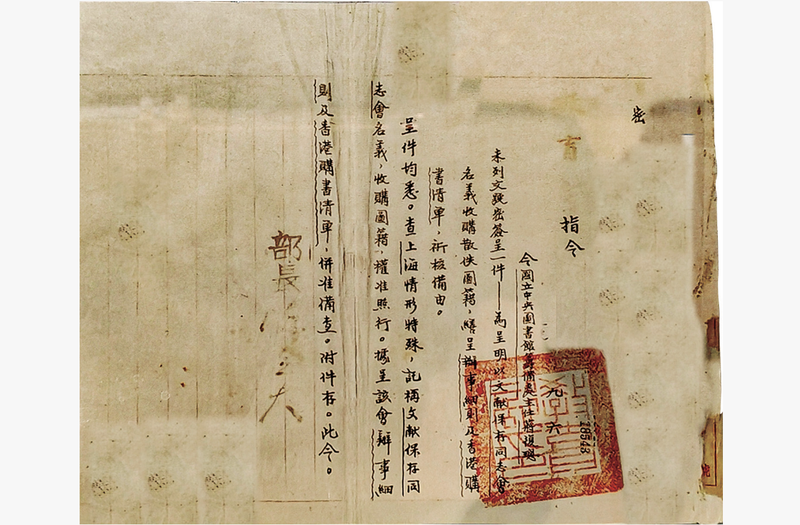 密
指令
令國立中央圖書館籌備處主任蔣復璁
未列文號密簽呈一件——為呈明以文献保存同志會
名義收購散佚圖籍，繕呈辦事細則及香港購
書清單，祈核備由。
呈件均悉。查上海情形特殊，託稱文献保存同
志會名義，收購圖籍，權准照行。據呈該會辦事細
則及香港購書清單，併准備查。附件存。此令。
部長